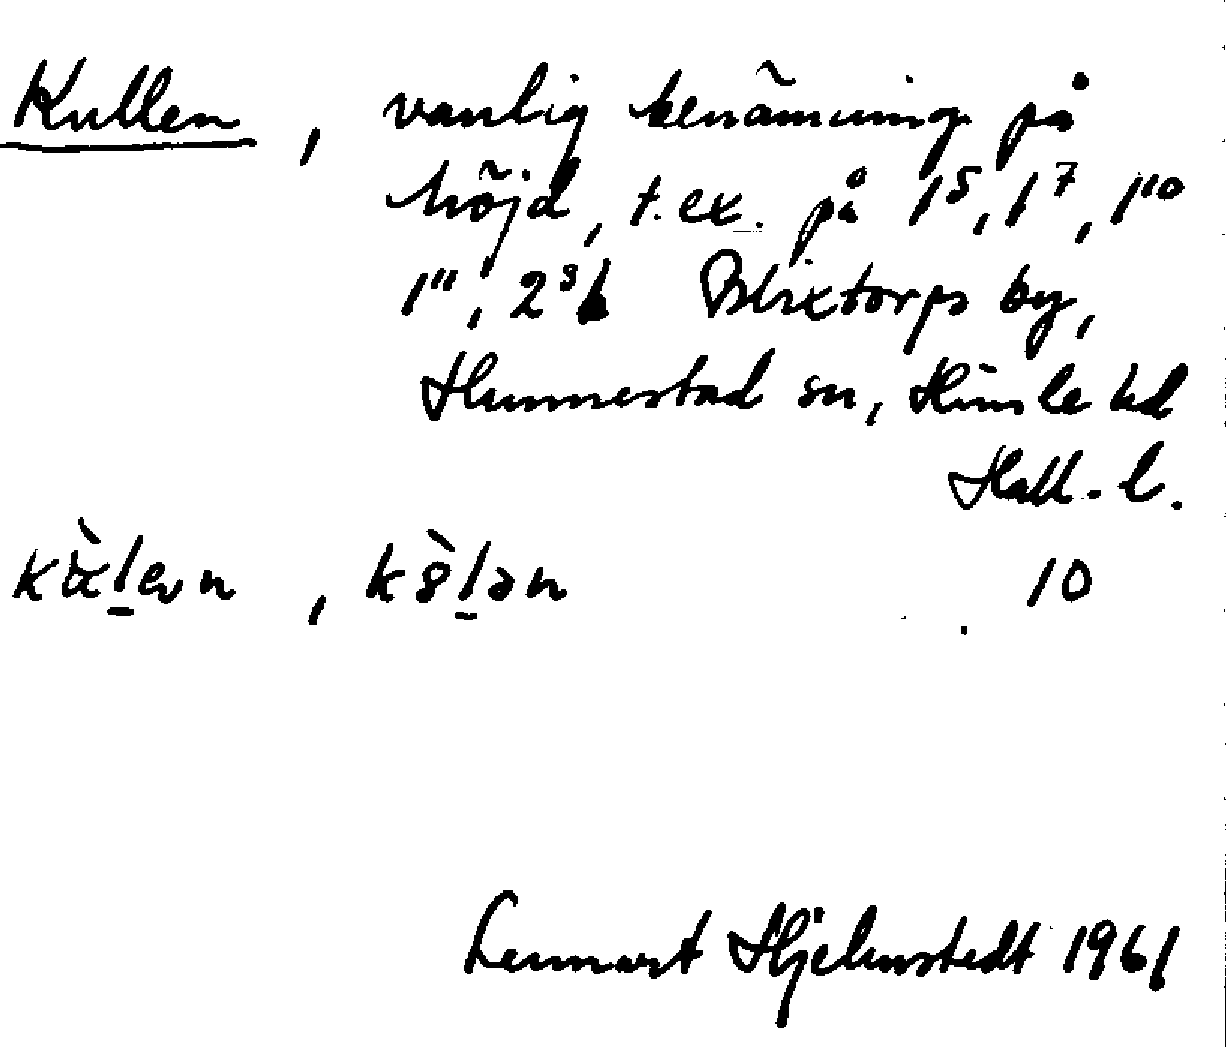 Kullen, vanlig benämning på
höjd, t.ex. på 1⁵, 1⁷, 1¹⁰
1¹¹, 2³ Blixtorps by,
Hunnestad sn, Himle hd
Hall. l.
10
Lennart Hjelmstedt 1961